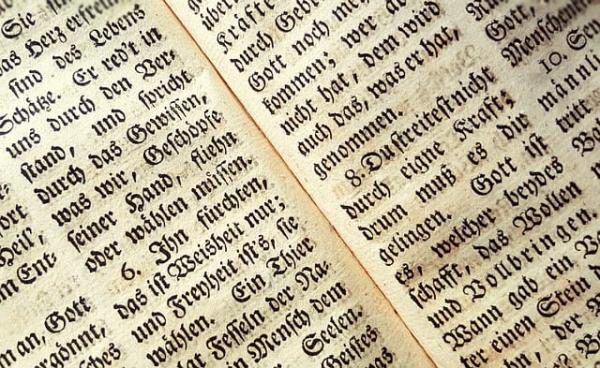 man, Gott
Sie
das Herz
sind des Lebens
Schätze. Er red't in
uns durch den Ver-
stand, und spricht
durch das Gewissen,
was wir, Geschöpfe
seiner Hand, fliehn
oder wählen müssen.
6. Ihn fürchten,
das ist Weisheit nur;
und Freyheit ist's, sie
wählen. Ein Thier
hat Fesseln der Na-
Mensch dem
Seelen.
Geistes
Kräfte
durch Gebr
Gott noch me
kommen; wer
nicht hat, dem wird
auch das, was er hat,
genommen.
8. Du streitest nicht
durch eigne Kraft;
drum muß es dir
gelingen. Gott ist
es, welcher beydes
schafft, das Wollen
und Vollbringen.
Wann gab ein
ter einen Stein
der
Gott,
10.
männli
tritt